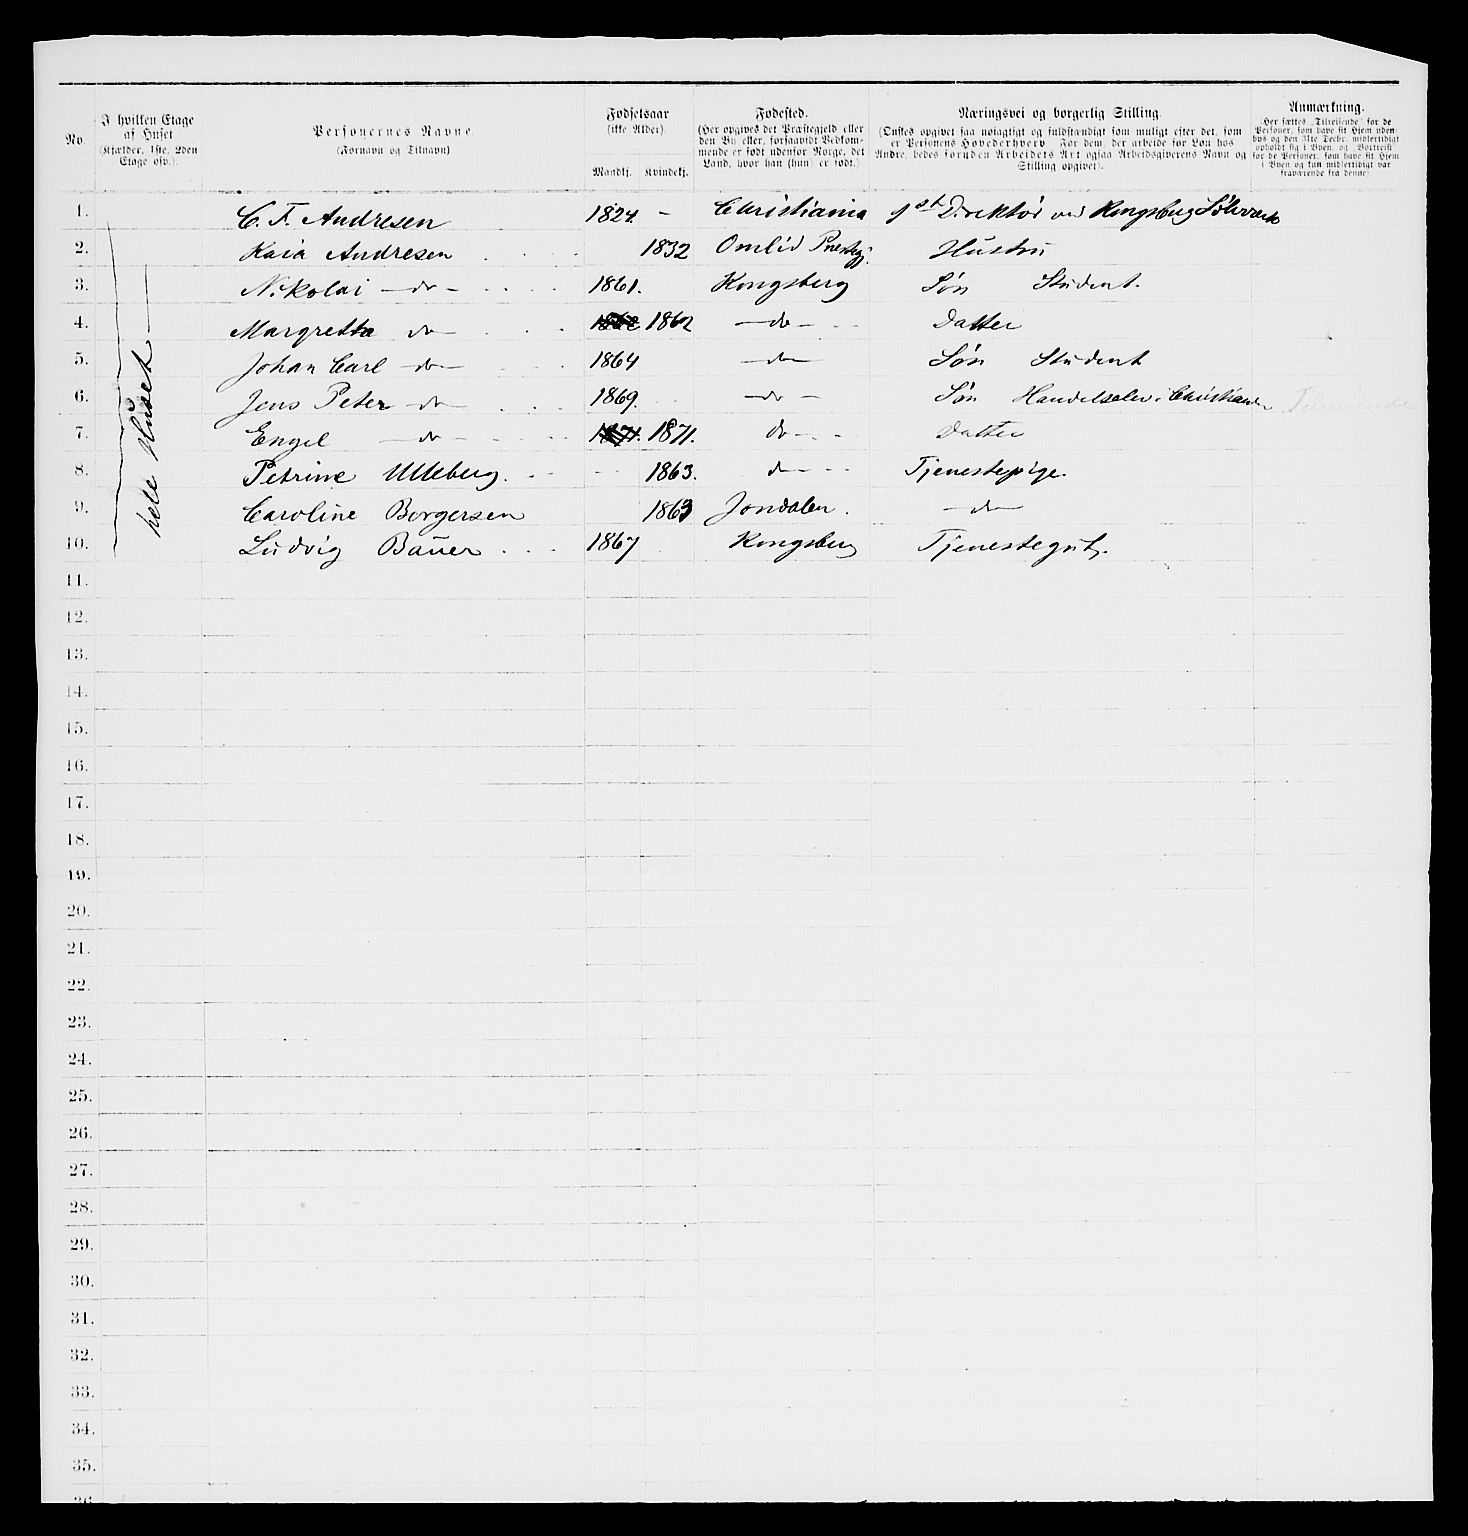 No.
I hvilken Etage
af Huset
(Kjælder, 1ste, 2den
Etage osv.).
Personernes Navne.
(Fornavn og Tilnavn)
Fødselsaar
(ikke Alder).
Mandkj. Kvindekj.
Fødested.
(Her opgives det Præstegjeld eller
den By eller, forsaavidt Vedkom-
mende er født udenfor Norge, det
Land, hvor han (hun) er født.)
Næringsvei og borgerlig Stilling.
(Ønskes opgivet saa nøiagtigt og fuldstændigt som muligt efter det, som
er Personens Hovederhverv. For dem, der arbeide for Løn hos
Andre, bedes foruden Arbeidets Art ogsaa Arbeidsgiverens Navn og
Stilling opgivet).
Anmærkning.
(Her sættes „Tilreisende" for de
Personer, som have sit Hjem uden-
bys og den 31te Decbr. midlertidigt
opholdt sig i Byen, og „Bortreist"
for de Personer, som have sit Hjem
i Byen og kun midlertidigt var
fraværende fra denne).
hele Huset
1. C. F. Andresen 1824. – Christiania 1st Direktør ved Kongsberg Sølvværk
2. Kaia Andresen 1832 Omlid Præstegj. Hustru
3. Nikolai — do — 1861. Kongsberg Søn Student.
4. Margretha do — 1862 — do — Datter
5. Johan Carl — do — 1864 — do — Søn Student
6. Jens Peter — do — 1869. — do — Søn Handelselev i Christiania
7. Engel — do — 1871. 1871. do — Datter
8. Petrine Ulleberg. 1863. do — Tjenestepige.
9. Caroline Borgersen 1863 Jondalen. — do —
10. Ludvig Bauer 1867 Kongsberg Tjenestegut.
11.
12.
13.
14.
15.
16.
17.
18.
19.
20.
21.
22.
23.
24.
25.
26.
27.
28.
29.
30.
31.
32.
33.
34.
35.
36